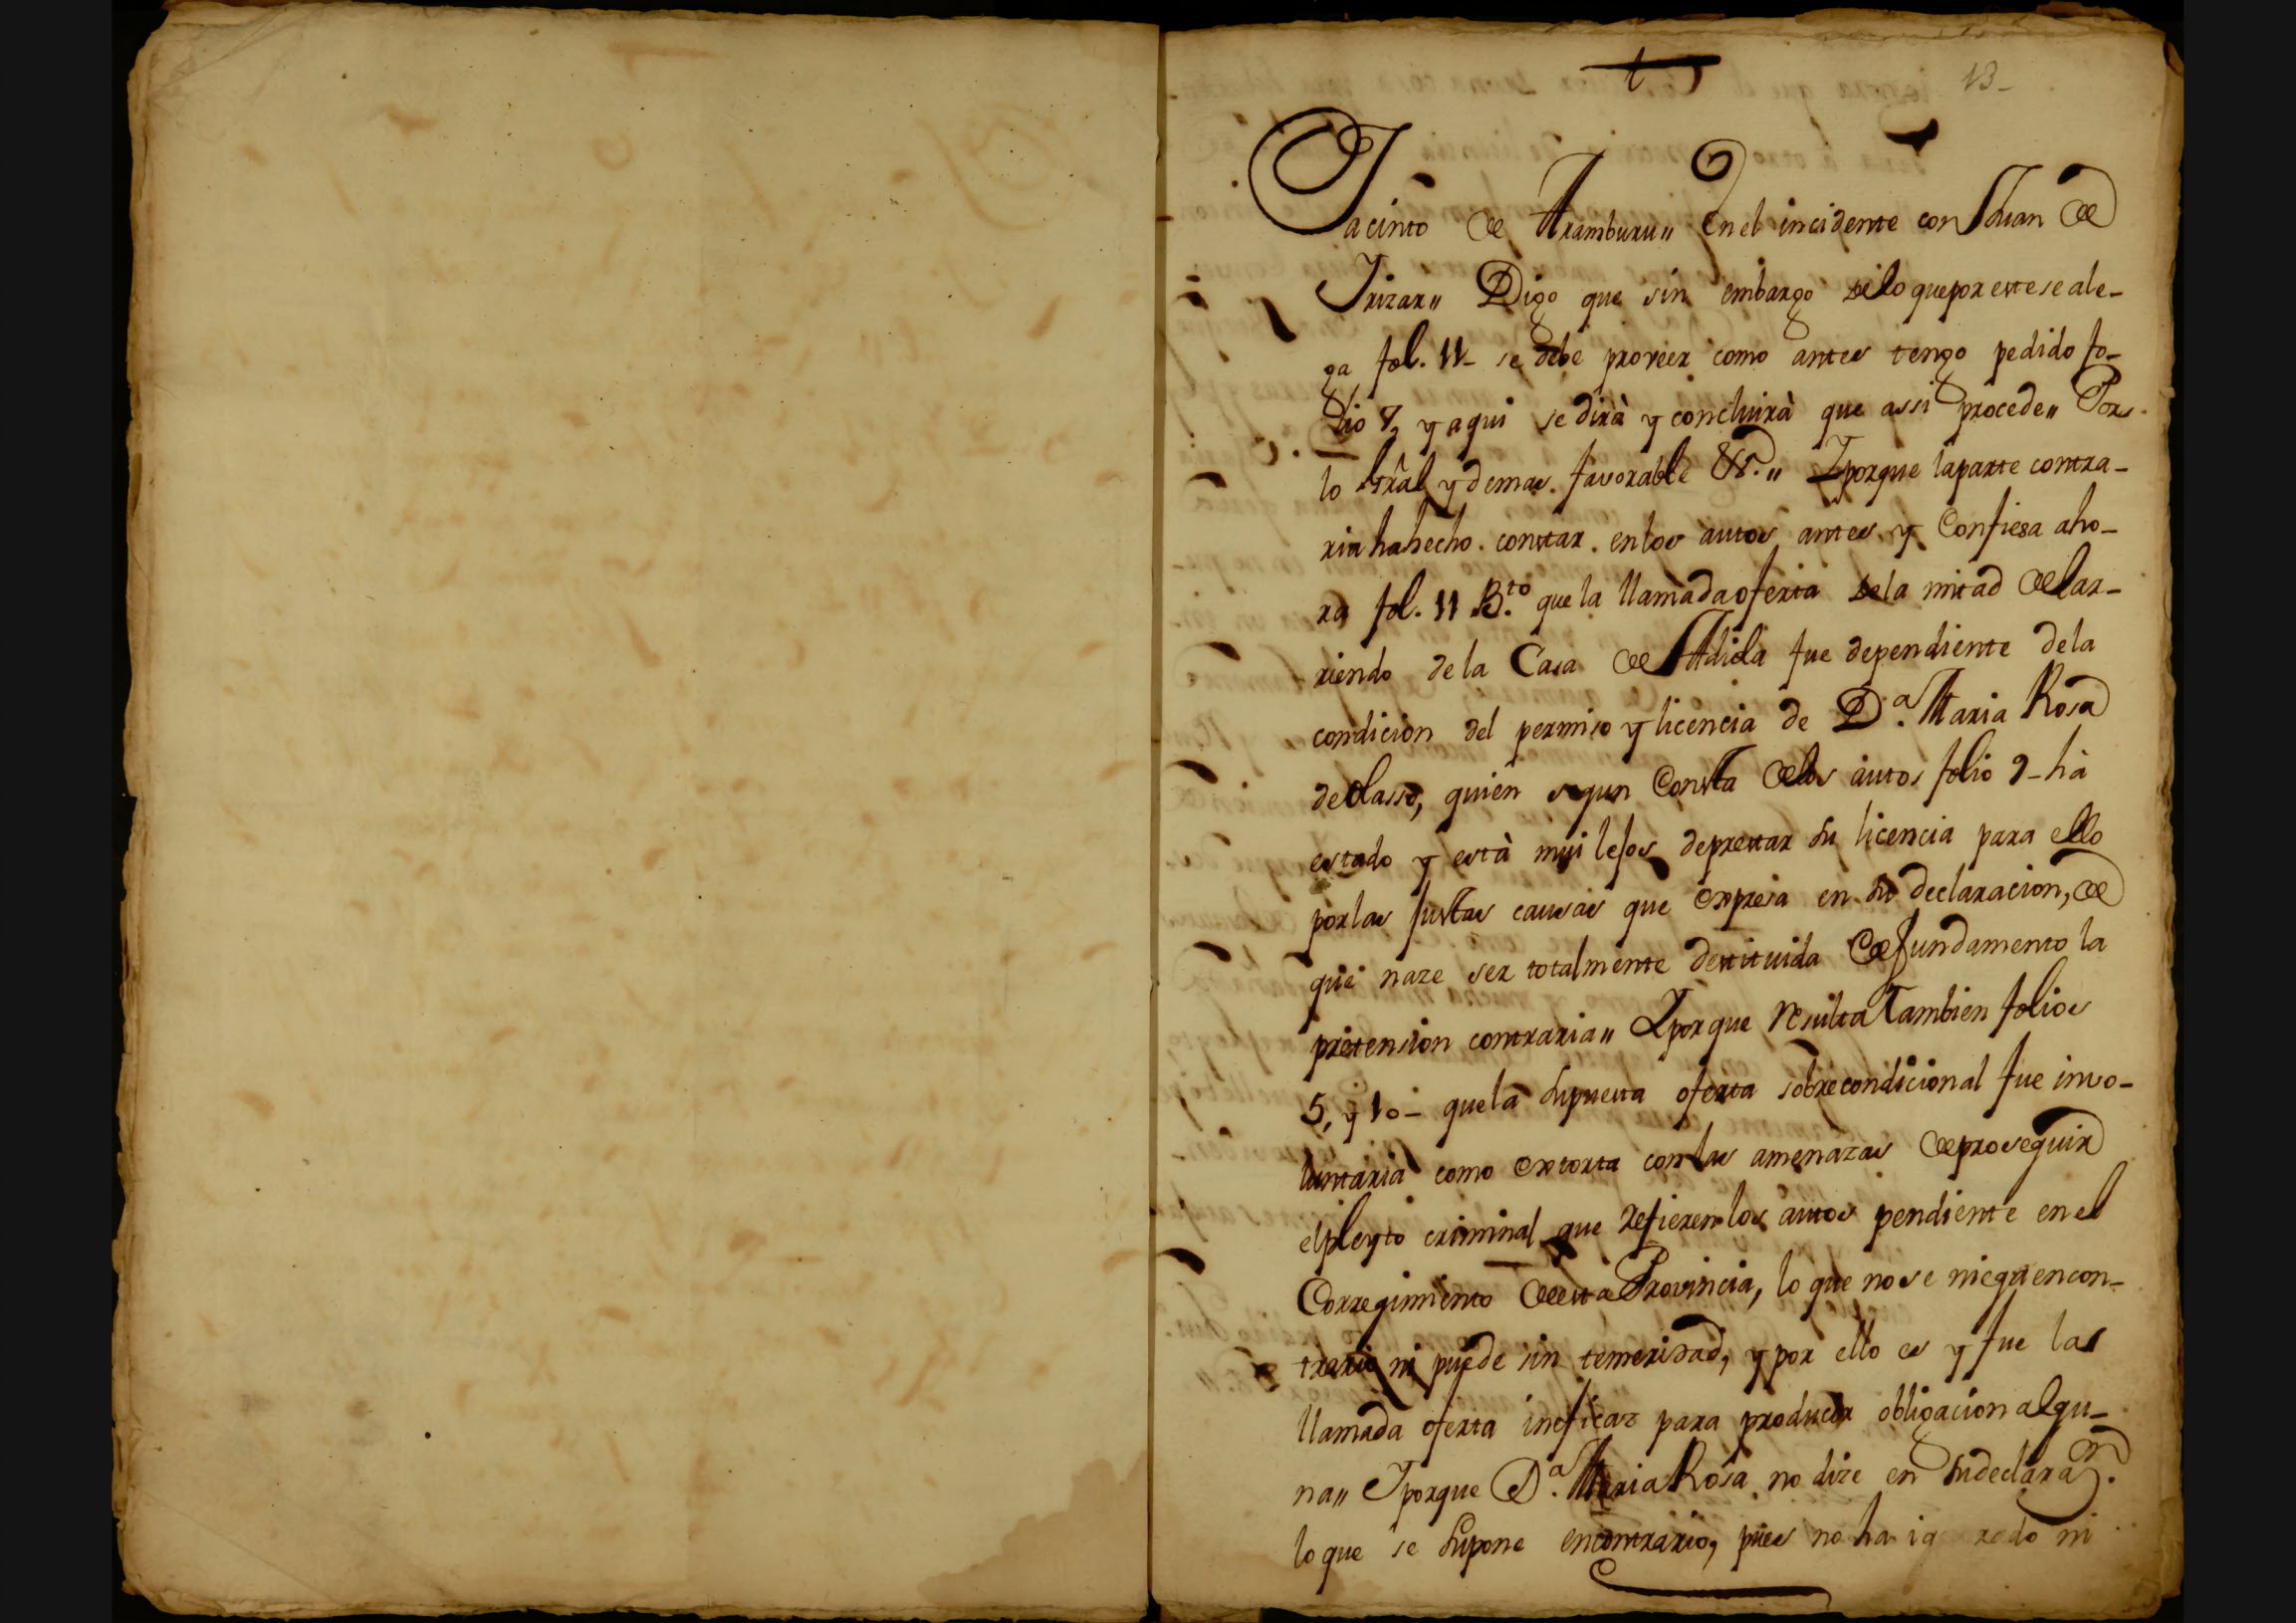 13-
Jacinto de Aramburu,, En el incidente con Juan de
Irizar,, Digo que sin embargo de lo que por este se ale-
ga fol. 11- se debe proveer como antes tengo pedido fo-
lio 7, y aqui se dirà y concluirà que assi procede,, Por
lo gr̃al y demas favorable &c.,, Yporque laparte contra-
ria ha hecho constar en los autos antes y Confiesa aho-
ra fol. 11 B.to que la llamada oferta dela mitad del ar-
riendo de la Casa de Adiola fue dependiente dela
condicion del permiso y licencia de D.a Maria Rosa
de olasso, quien segun Consta de los autos folio 9- hà
estado y està mui lejos deprestar su licencia para ello
por las justas causas que expresa en su declaracion, de
que naze ser totalmente destituida de fundamento la
pretension contraria,, Yporque resulta tambien folios
5, y 10- que la supuesta oferta sobre condicional fue invo-
luntaria como extorta con las amenazas de proseguir
el pleyto criminal que refieren los autos pendiente en el
Corregimiento de esta Provincia, lo que no se niega en con-
trario ni puede sin temeridad, y por ello es y fue la
llamada oferta ineficaz para producir obligacion algu-
na,, Yporque D.a Maria Rosa no dize en su declaraon.
lo que se supone en contrario, pues no ha ni